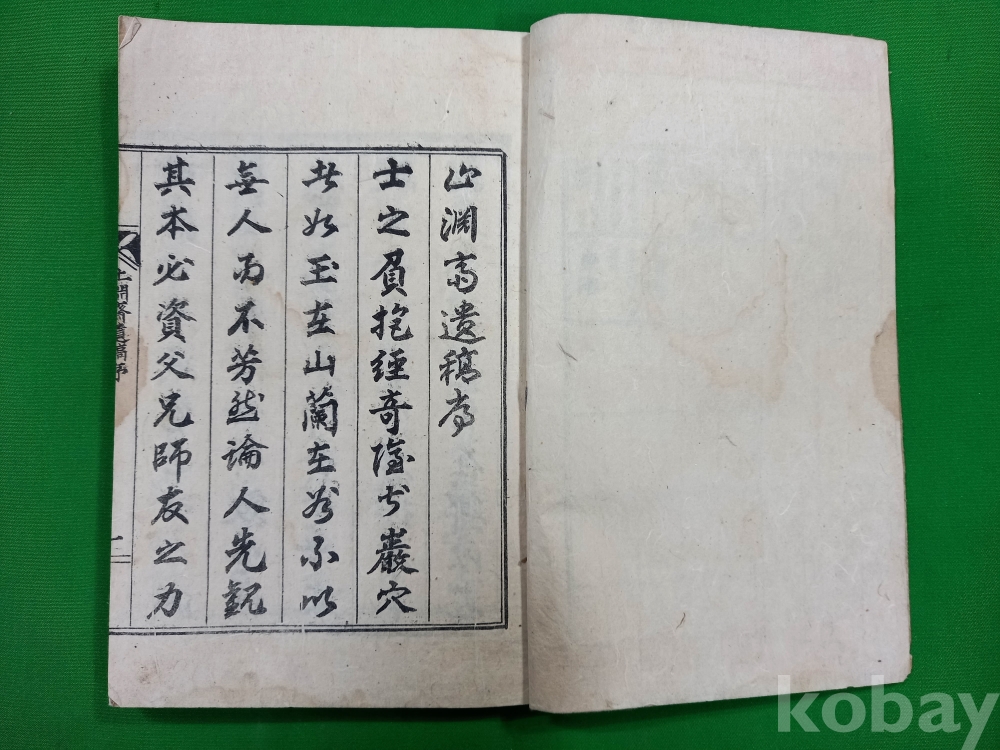 止淵齋遺稿序
士之負抱經奇隱於巖穴
者如玉在山蘭在谷不以
無人而不芳然論人先觀
其本必資父兄師友之力
止淵齋遺稿序
一
kobay